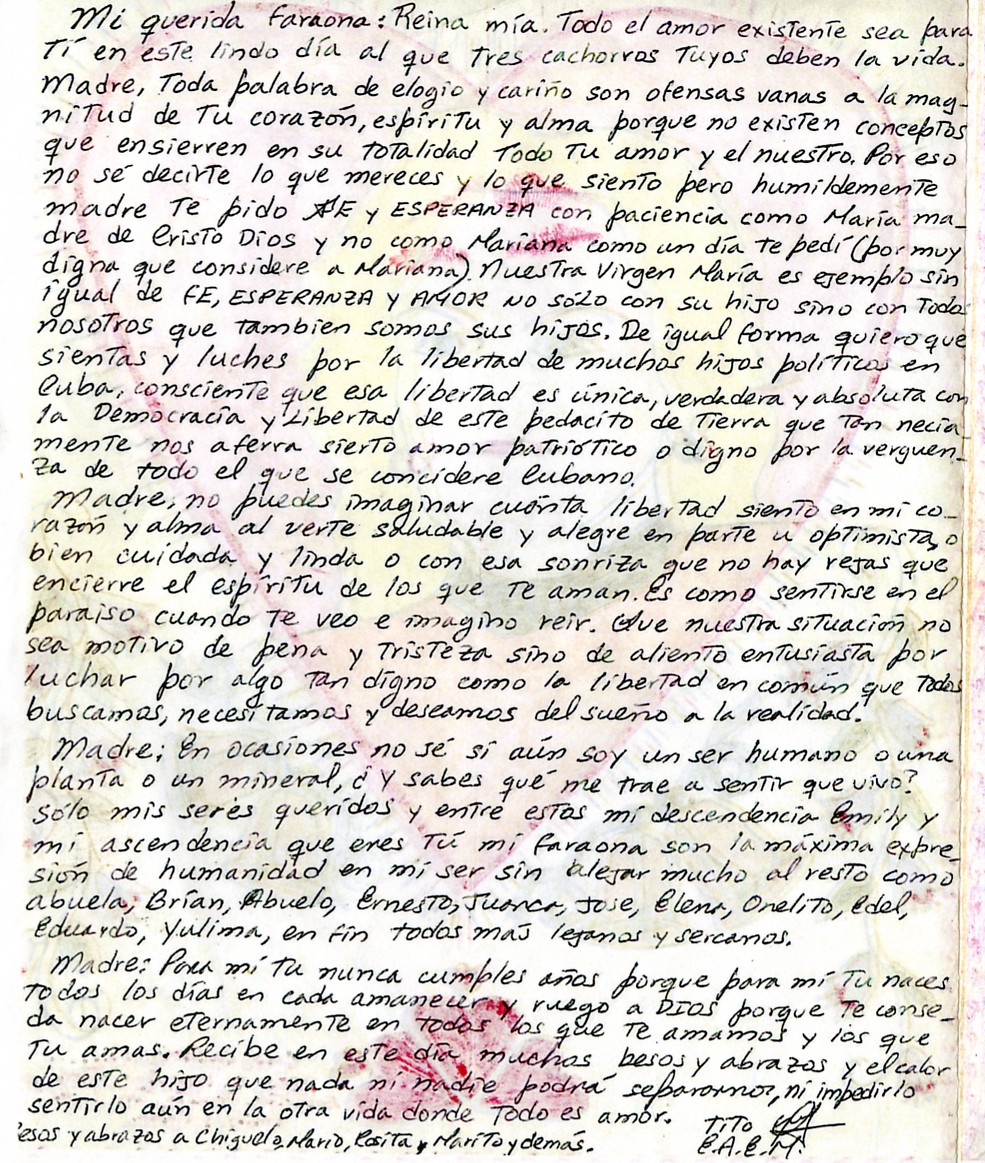 Mi querida faraona: Reina mía. Todo el amor existente sea para
Tí en este lindo día al que tres cachorros Tuyos deben la vida.
Madre, Toda palabra de elogio y cariño son ofensas vanas a la mag-
nitud de Tu corazón, espíritu y alma porque no existen conceptos
que ensierren en su totalidad Todo Tu amor y el nuestro. Por eso
no sé decirte lo que mereces y lo que siento pero humildemente
madre Te pido FE y ESPERANZA con paciencia como María ma-
dre de Cristo Dios y no como Mariana como un día te pedí (por muy
digna que considere a Mariana). Nuestra Virgen María es ejemplo sin
igual de FE, ESPERANZA y AMOR no sólo con su hijo sino con Todos
nosotros que tambien somos sus hijos. De igual forma quiero que
sientas y luches por la libertad de muchos hijos políticos en
Cuba, consciente que esa libertad es única, verdadera y absoluta con
la Democracía y Libertad de este pedacito de Tierra que tan necia-
mente nos aferra sierto amor patriótico o digno por la verguen-
za de todo el que se concidere Cubano.
Madre; no puedes imaginar cuánta libertad siento en mi co-
razón y alma al verte saludable y alegre en parte u optimista, o
bien cuidada y linda o con esa sonriza que no hay rejas que
encierre el espíritu de los que Te aman. Es como sentirse en el
paraiso cuando Te veo e imagino reir. Que nuestra situación no
sea motivo de pena y Tristeza sino de aliento entusiasta por
luchar por algo tan digno como la libertad en común que Todos
buscamos, necesitamos y deseamos del sueño a la realidad.
Madre; En ocasiones no sé si aún soy un ser humano o una
planta o un mineral, ¿Y sabes qué me trae a sentir que vivo?
Sólo mis seres queridos y entre estos mi descendencia Emily y
mi ascendencia que eres Tú mi faraona son la máxima expre-
sión de humanidad en mi ser sin alejar mucho al resto como
abuela, Brían, Abuelo, Ernesto, Juanca, Jose, Elena, Onelito, Edel,
Eduardo, Yulima, en fin todos más lejanos y sercanos.
Madre: Para mí tu nunca cumples años porque para mí Tu naces
Todos los días en cada amanecer y ruego a DIOS porque Te conse-
da nacer eternamente en todos los que Te amamos y los que
Tu amas. Recibe en este día muchos besos y abrazos y el calor
de este hijo que nada ni nadie podrá separarnos, ni impedirlo
sentirlo aún en la otra vida donde Todo es amor. TITO
esos y abrazos a Chiguelo, Mario, Rosita, Marito y demás. E.A.E.M.